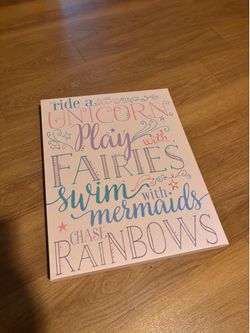 ride a
UNICORN
Play with
FAIRIES
swim with
mermaids
CHASE
RAINBOWS